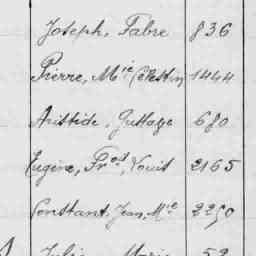 Joseph, Fabre 836
Pierre, Mie Célestin 1444
Aristide, 680
Eugène, Frod, 2165
Constant, Jean, Mie 2290
Julie Marie 52